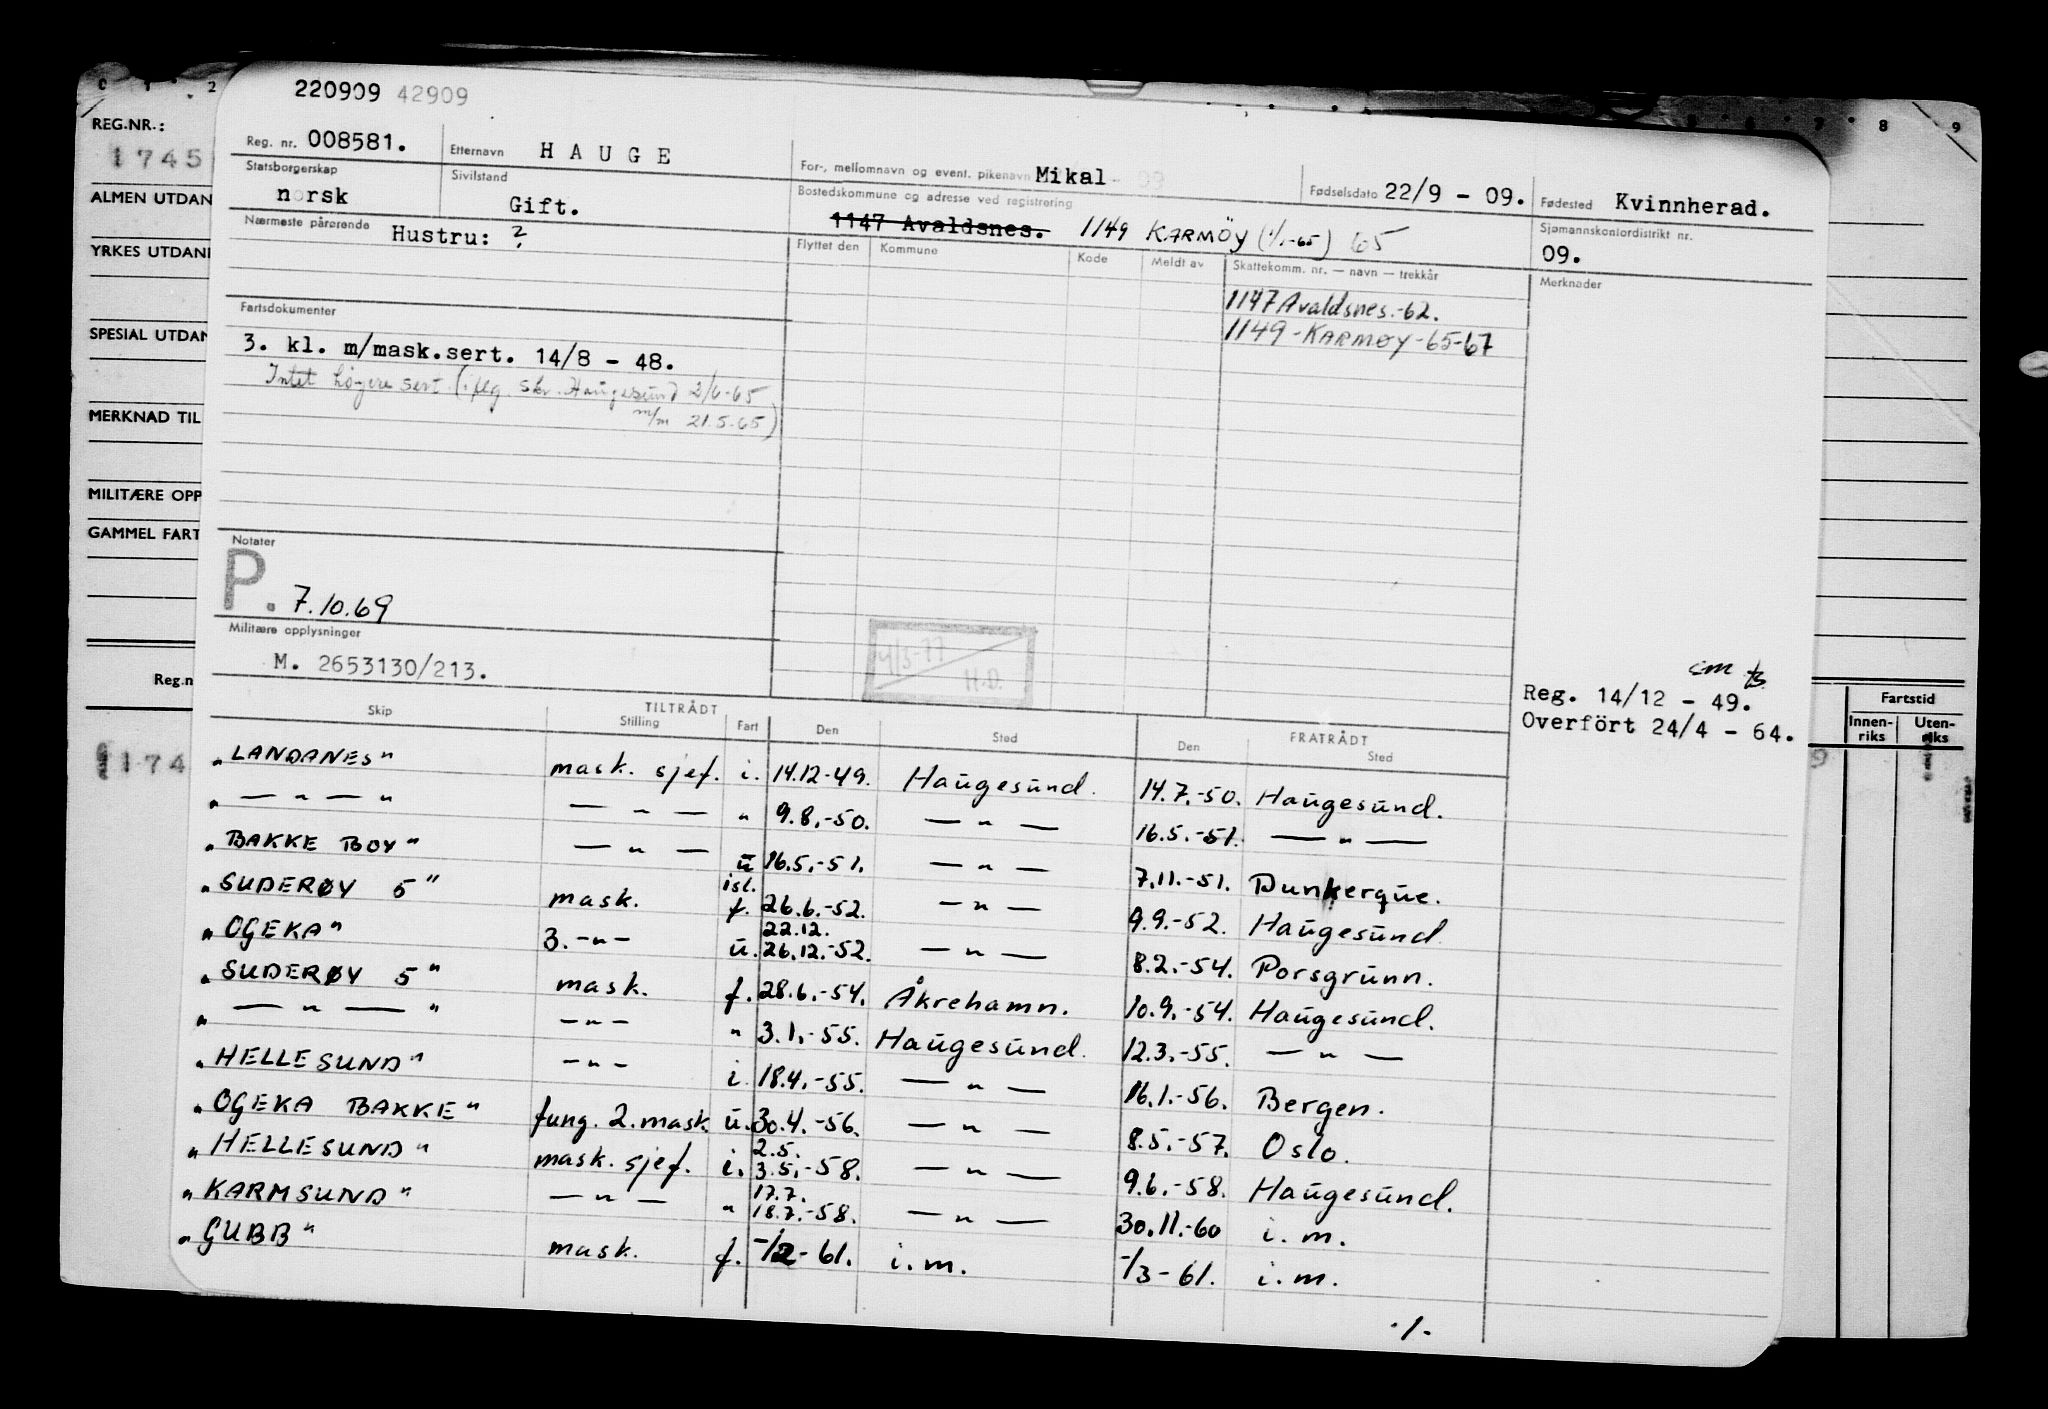 220909 42909
REG.NR.:
1745
ALMEN UTDAN
YRKES UTDAN
SPESIAL UTDAN
MERKNAD TIL
MILITÆRE OPP
GAMMEL FART
Reg.n
174
Reg. nr. 008581. Etternavn HAUGE For-, mellomnavn og event. pikenavn Mikal Fødselsdato 22/9 - 09. Fødested Kvinnherad.
Statsborgerskap norsk Sivilstand Gift. Bostedskommune og adresse ved registrering 1147 Avaldsnes. 1149 KARMØY (1/1-65) 65 Sjømannskontordistrikt nr. 09.
Nærmeste pårørende Hustru: ?
Flyttet den Kommune Kode Meldt av Skattekomm. nr. — navn — trekkår Merknader
1147 Avaldsnes.-62.
1149-KARMØY-65-67
Fartsdokumenter
3. kl. m/mask.sert. 14/8 - 48.
Intet høyere sert. (iflg. skr. Haugesund 2/6-65
m/m 21.5.65)
Notater
P. 7.10.69
Militære opplysninger
M. 2653130/213.
4/3-77
H.D.
Reg. 14/12 - 49.
Overfört 24/4 - 64.
Fartstid
Innen-riks Uten-riks
TILTRÅDT FRATRÅDT
Skip Stilling Fart Den Sted Den Sted
"LANDANES" mask. sjef. i. 14.12-49. Haugesund. 14.7.-50. Haugesund.
" — " — " — " — " 9.8.-50. — " — 16.5.-51. — " —
"BAKKE BOY" — " — u 16.5.-51. — " — 7.11.-51. Dunkerque.
"SUDERØY 5" mask. isl. f. 26.6.-52. — " — 9.9.-52. Haugesund
"OGEKA" 3. -"- u. 22.12. 26.12.-52. — " — 8.2.-54. Porsgrunn.
"SUDERØY 5" mask. f. 28.6.-54. Åkrehamn. 10.9.-54. Haugesund.
" — " — " -"- " 3.1.-55. Haugesund. 12.3.-55. — " —
"HELLESUND" -"- i. 18.4.-55. — " — 16.1.-56. Bergen.
"OGEKA BAKKE" fung. 2. mask. u. 30.4.-56. — " — 8.5.-57. Oslo.
"HELLESUND" mask. sjef. i. 2.5. 3.5.-58. — " — 9.6.-58. Haugesund.
"KARMSUND" — " — " 17.7. 18.7.-58. — " — 30.11.-60 i. m.
"GUBB" mask. f. -/2-61. i. m. -/3-61. i. m.
./.